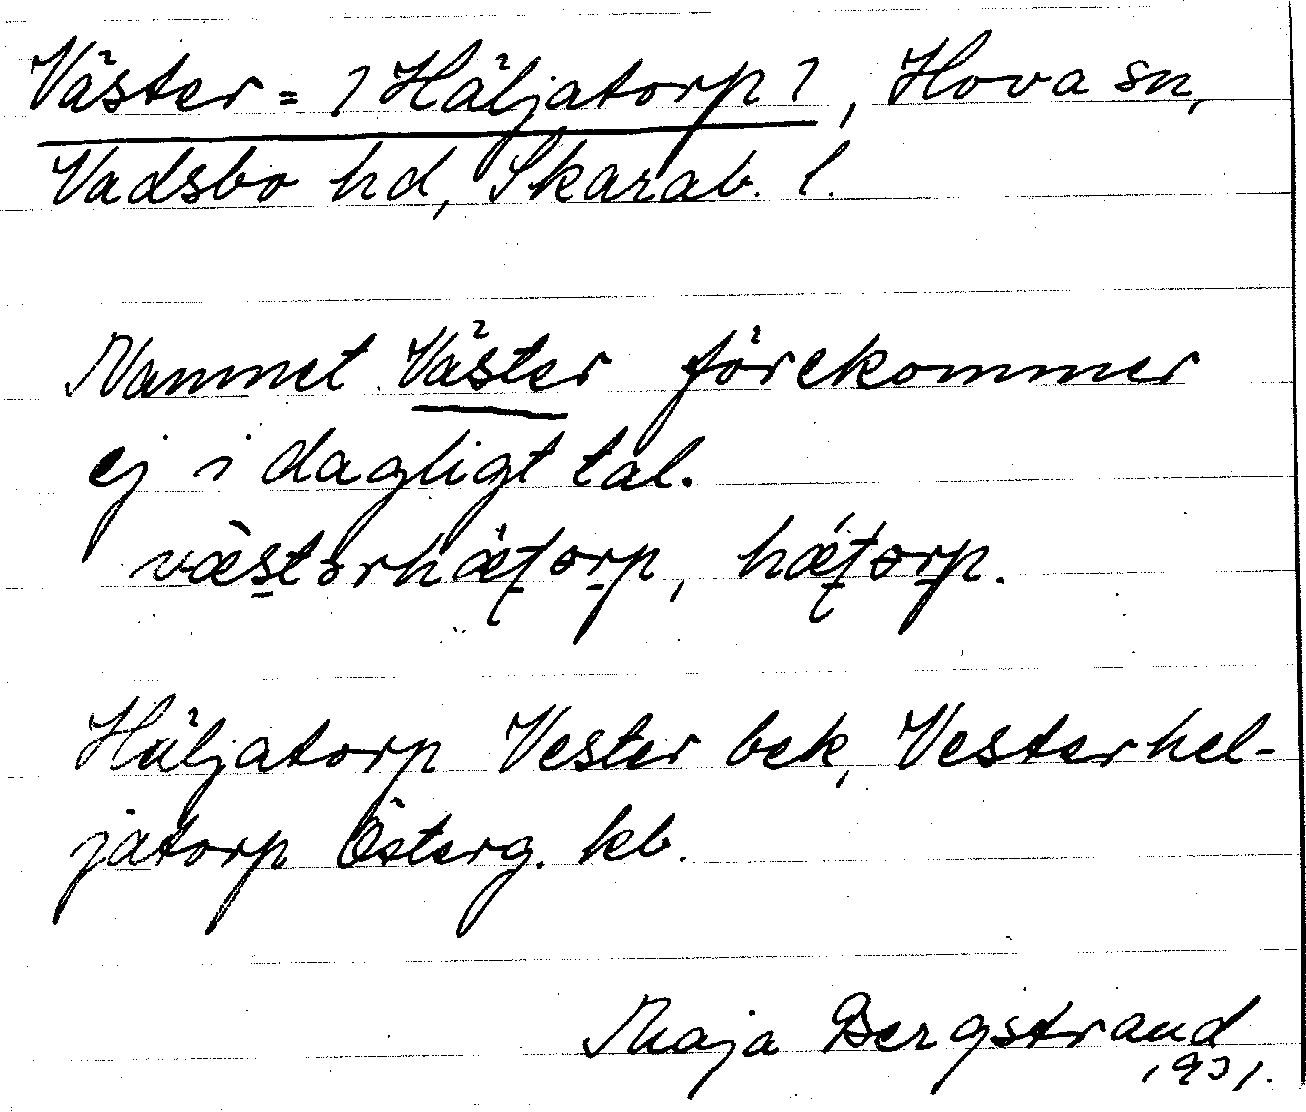 Väster= ⁊Häljatorp⁊, Hova sn,
Vadsbo hd, Skarab. l.
Namnet Väster förekommer
ej i dagligt tal.
Häljatorp Vester bek, Vesterhel-
jatorp Österg. kb.
Maja Bergstrand
1931.